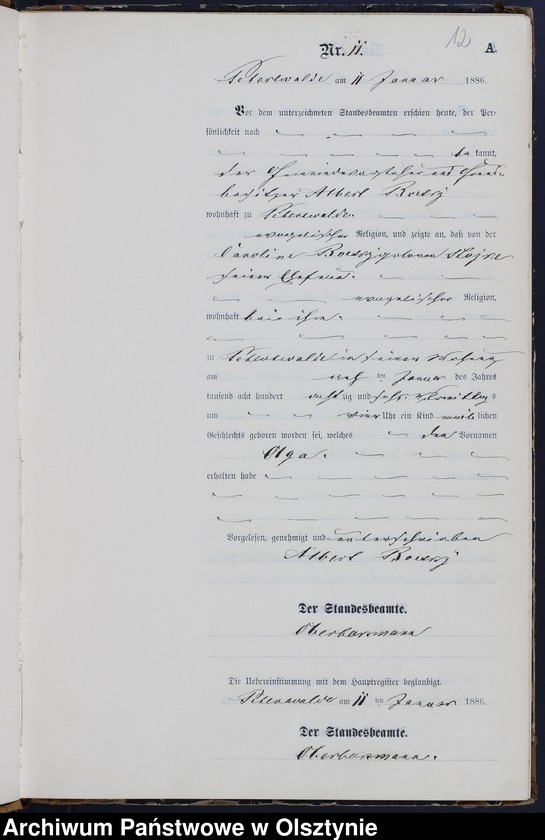 12
Nr. 11. A.
Peterswalde am 11 Januar 1886.
Vor dem unterzeichneten Standesbeamten erschien heute, der Per-
sönlichkeit nach
be kannt,
der Gemeindevorsteher und Grund-
besitzer Albert
wohnhaft zu Peterswalde.
evangelischer Religion, und zeigte an, daß von der
Caroline geborenen
seiner Ehefrau.
evangelischer Religion,
wohnhaft bei ihm.
zu Peterswalde in seiner Wohnung
am ten Januar des Jahres
tausend acht hundert acht zig und sechs Vormittags
um vier Uhr ein Kind weib lichen
Geschlechts geboren worden sei, welches den Vornamen
Olga.
erhalten habe
Vorgelesen, genehmigt und unterschrieben
Albert
Der Standesbeamte.
Die Uebereinstimmung mit dem Hauptregister beglaubigt.
Peterswalde am 11 ten Januar 1886.
Der Standesbeamte.
Archiwum Państwowe w Olsztynie